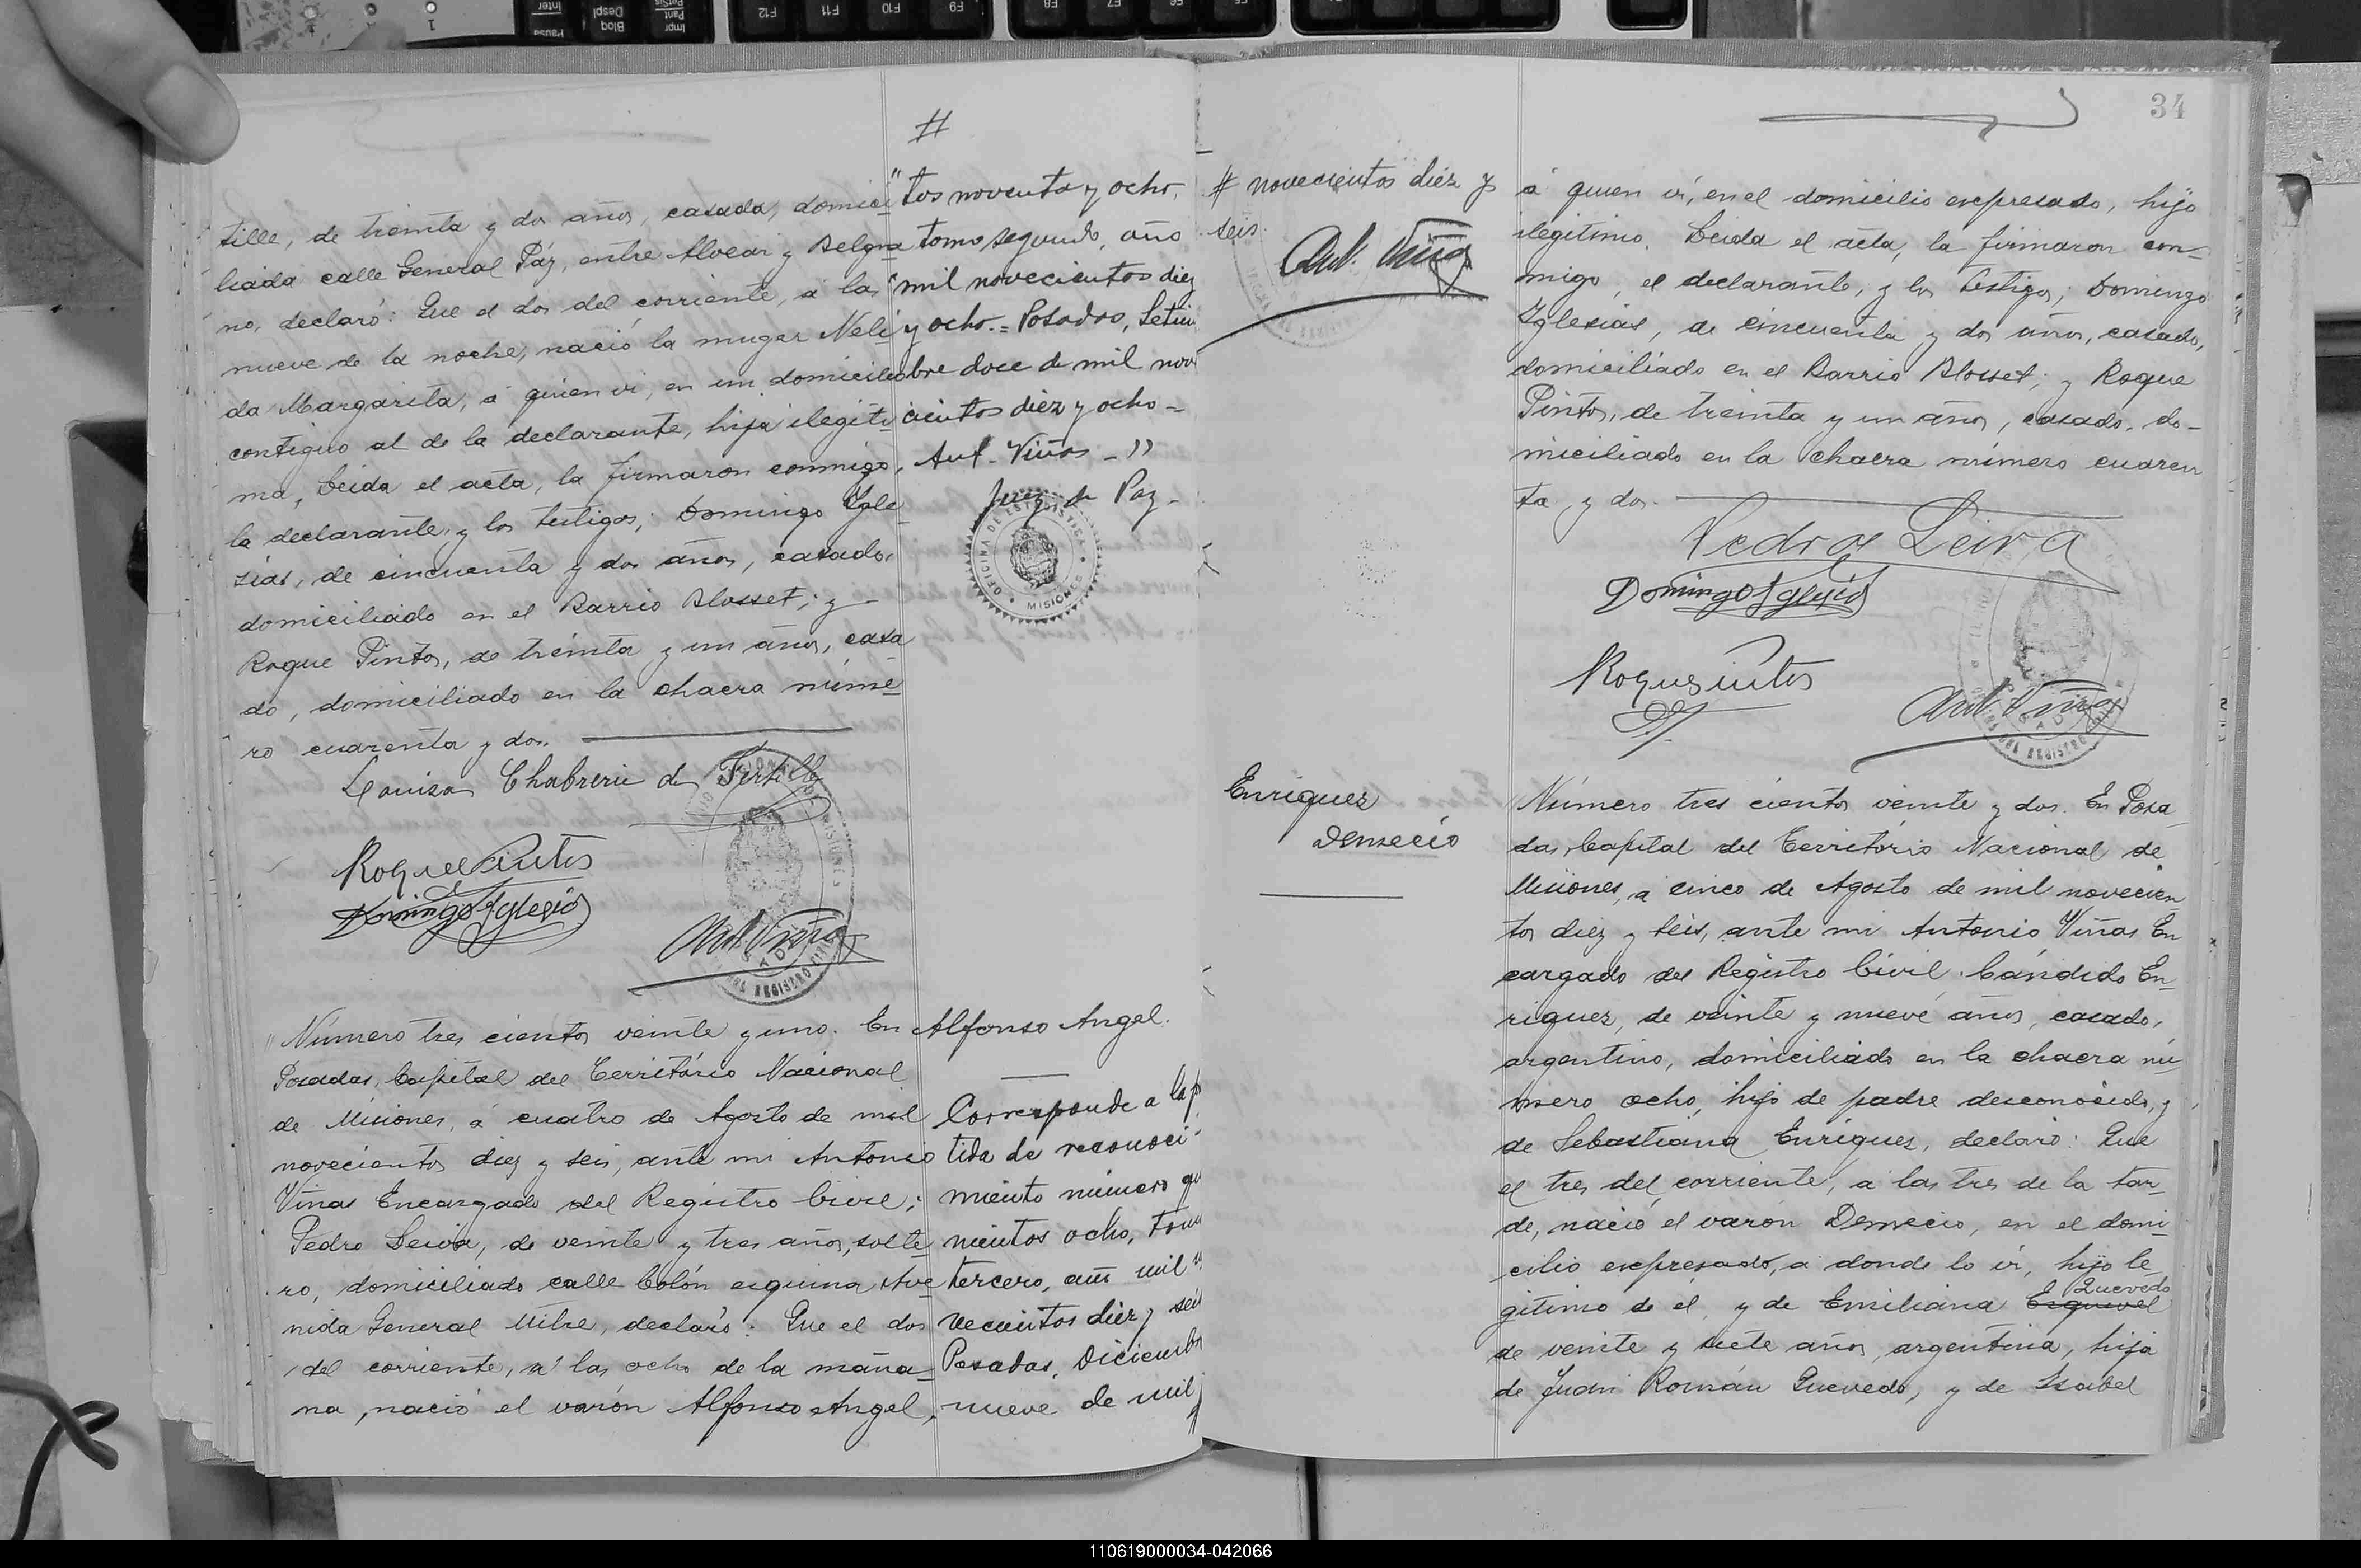 tille, de treinta y dos años, casada, domici
liada calle General Páz, entre Alvear y Belgra
no, declaró: Que el dos del corriente, a las
nueve de la noche, nació la muger Neli
da Margarita, á quien vi, en un domicilio
contiguo al de la declarante, hija ilegiti
ma, Leida el acta, la firmaron conmigo,
la declarante, y los testigos; Domingo Ygle
sias, de cincuenta y dos años, casado,
domiciliado en el Barrio Blosset; y
Roque Pintos, de treinta y un años, casa
do, domiciliado en la chacra núme
ro cuarenta y dos.
Louisa Chabrerie de Fertille
Roque Pintos
Domingo Yglesias
Ant. Viñas
#
"tos noventa y ocho,
tomo segundo, año
"mil novecientos diez
y ocho.= Posadas, Setiem
bre doce de mil nove
cientos diez y ocho -
Ant. Viñas - "
Juez de Paz -
OFICINA DE ESTADISTICA
MISIONES
Número tres cientos veinte y uno. En
Posadas, Capital del Território Nacional
de Misiones, á cuatro de Agosto de mil
novecientos diez y seis, ante mi Antonio
Viñas Encargado del Registro Civil;
Pedro Leiva, de veinte y tres años, solte
ro, domiciliado calle Colón esquina Ave
nida General Mitre, declaró: Que el dos
del corriente, a las ocho de la maña
na, nació el varón Alfonso Angel,
Alfonso Angel.
Corresponde a la p
tida de reconoci-
miento número qui
nientos ocho, tomo
tercero, año mil n
vecientos diez y seis
Posadas, Diciembre
nueve de mil
34
# novecientos diez y
seis.
Ant. Viñas
á quien ví, en el domicilio expresado, hijo
ilegitimo. Leida el acta, la firmaron con-
migo, el declarante, y los testigos; Domingo
Yglesias, de cincuenta y dos años, casado,
domiciliado en el Barrio Blosset; y Roque
Pintos, de treinta y un años, casado, do-
miciliado en la chacra número cuaren
ta y dos.
Pedro Leiva
Domingo Yglesias
Roque Pintos
Ant. Viñas
Enriquez
Demecio
Número tres cientos veinte y dos. En Posa
das, Capital del Território Nacional de
Misiones, a cinco de Agosto de mil novecien
tos diez y seis, ante mi Antonio Viñas En
cargado del Registro Civil. Cándido En
riquez, de veinte y nueve años, casado,
argentino, domiciliado en la chacra nú
mero ocho, hijo de padre desconocido, y
de Sebastiana Enriquez, declaró: Que
el tres del corriente, a las tres de la tar
de, nació el varón Demecio, en el domi
cilio expresado, a donde lo vi, hijo le
gitimo de él, y de Emiliana Esquivel Quevedo
de veinte y siete años, argentina, hija
de Juan Román Quevedo, y de Isabel
110619000034-042066